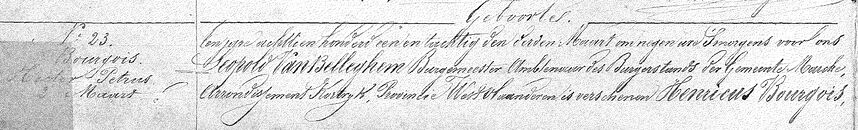 Geboorte.
No 23.
Bourgois.
Petrus
Maart
Ten jare achttien honderd een en tachtig den derden Maart om negen ure s'morgens voor ons
Leopold Van Belleghem Burgemeester Ambtenaar des Burgerstands der Gemeente Marcke,
Arrondissement Kortryk, Provintie West Vlaanderen is verschenen Henricus Bourgois,